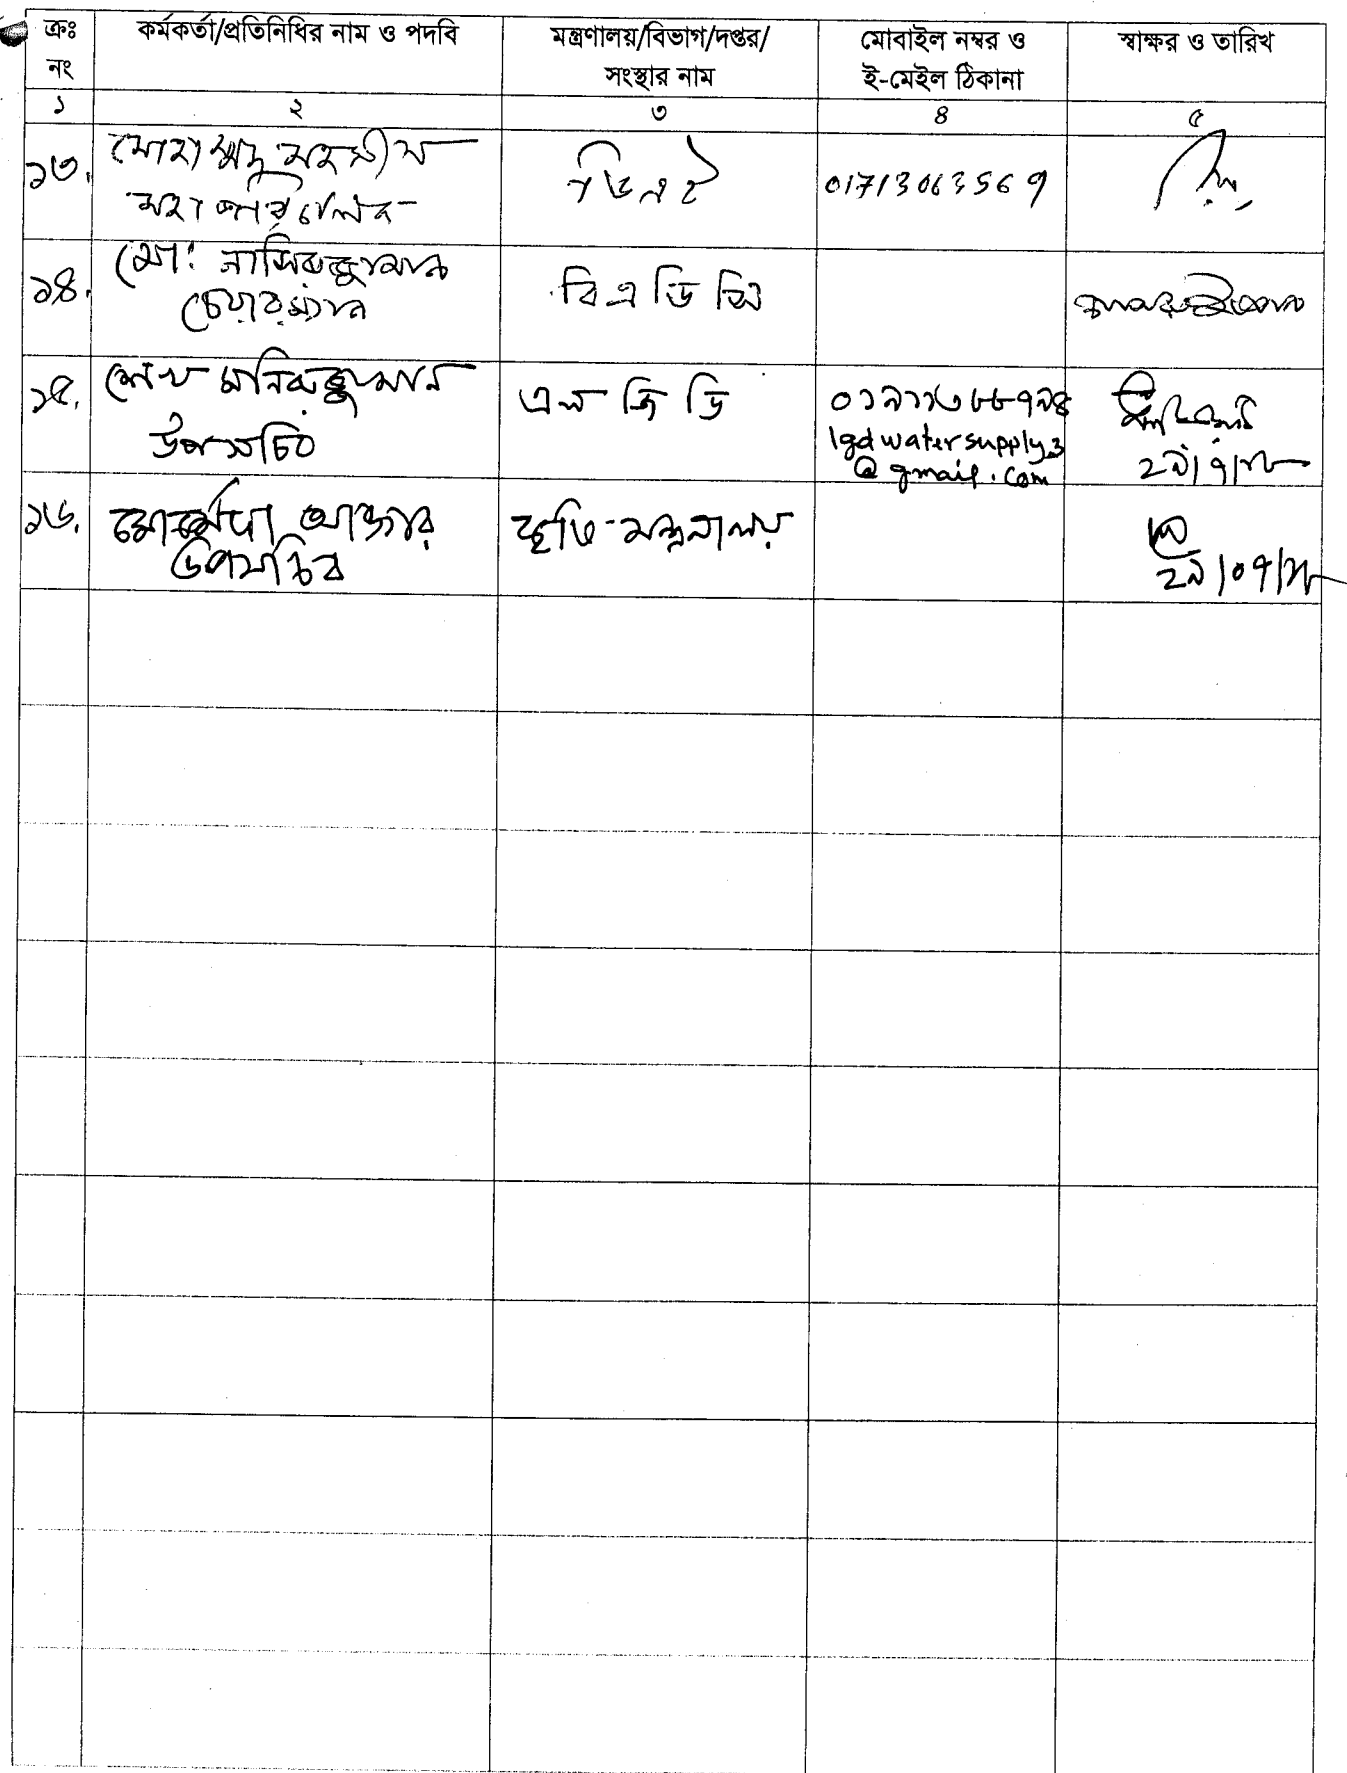 ক্রঃ নং
কর্মকর্তা/প্রতিনিধির নাম ও পদবি
মন্ত্রণালয়/বিভাগ/দপ্তর/
সংস্থার নাম
মোবাইল নম্বর ও
ই-মেইল ঠিকানা
স্বাক্ষর ও তারিখ
১ ২ ৩ ৪ ৫
১৩.
মোহাম্মদ মহসীন
মহাপরিচালক
ডিএই
01713063569
১৪.
মো: নাসিরুজ্জামান
চেয়ারম্যান
বিএডিসি
১৫.
শেখ মনিরুজ্জামান
উপসচিব
এল জি ডি
lgdwatersupply3
@gmail.com
২৯/৭/১৮
১৬.
আক্তার
উপসচিব
কৃষি মন্ত্রনালয়
২৯/০৭/১৮